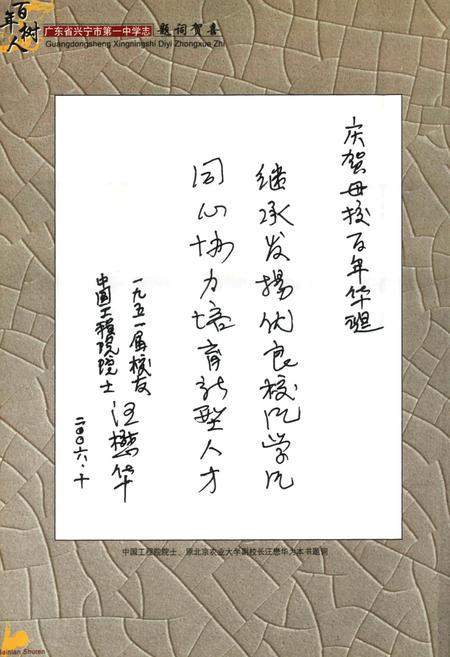 百年树人
广东省兴宁市第一中学志 题词贺喜
Guangdongsheng Xingningshi Diyi Zhongxue Zhi
庆贺母校百年华诞
继承发扬优良校风学风
同心协力培育新型人才
一九五一届校友
中国工程院院士 汪懋华
二〇〇六·十
中国工程院院士、原北京农业大学副校长汪懋华为本书题词
Bainian Shuren